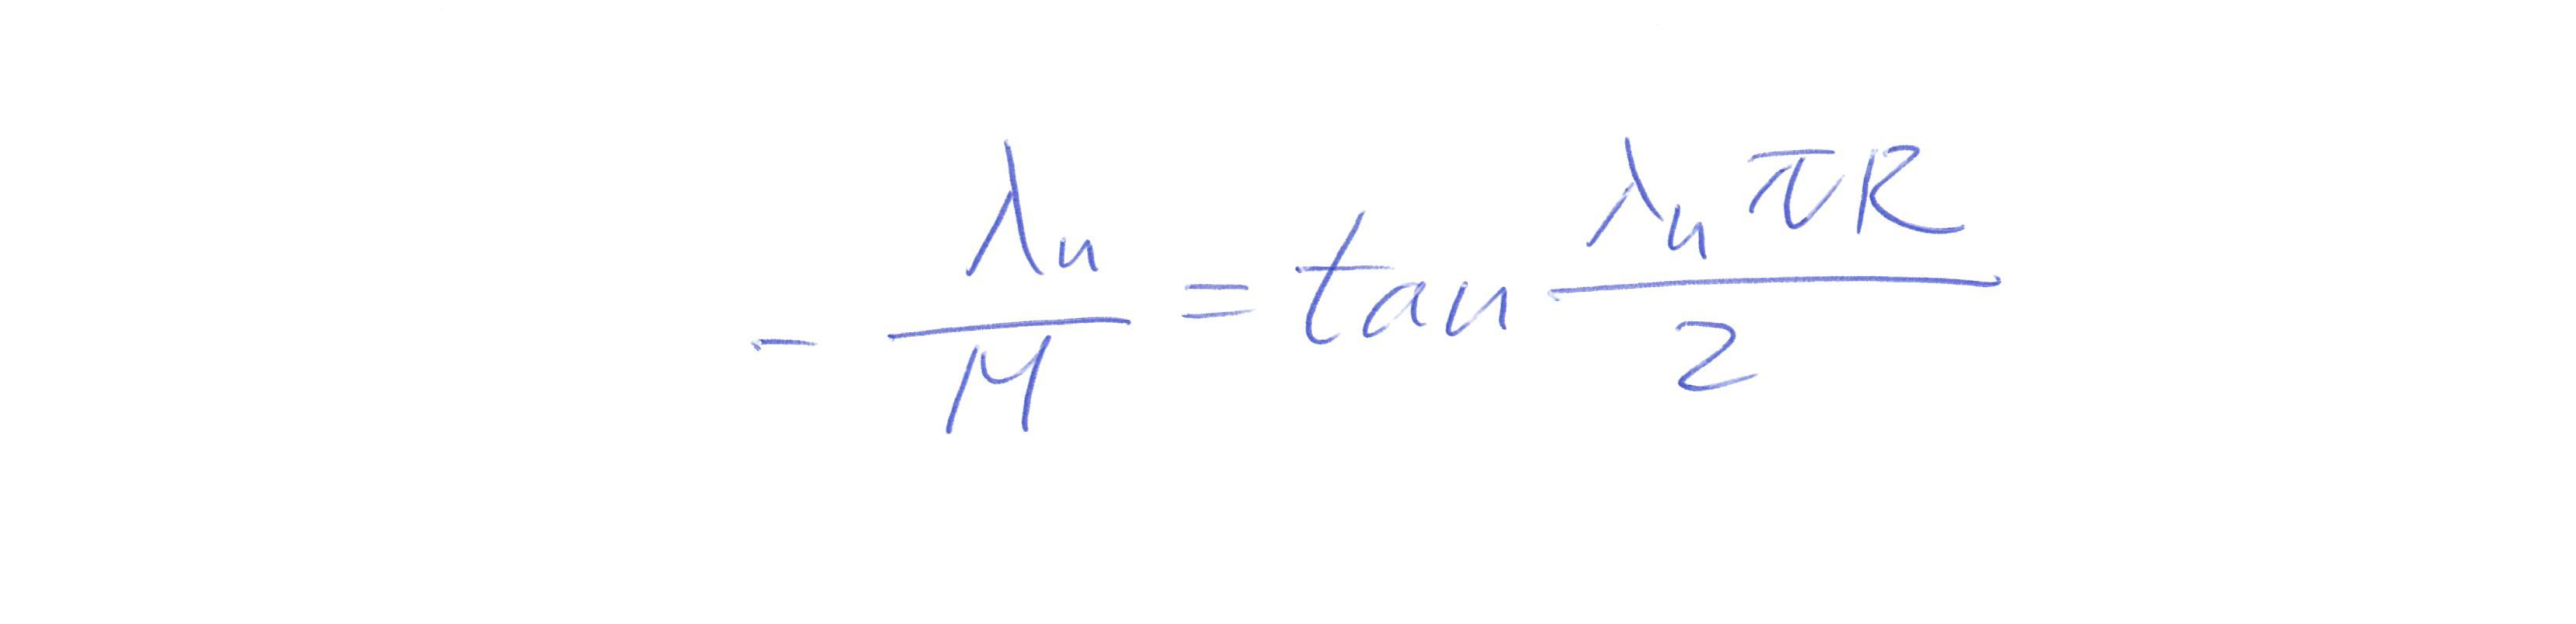 -\frac{\lambda_n}{M} = \tan \frac{\lambda_n \pi R}{2}